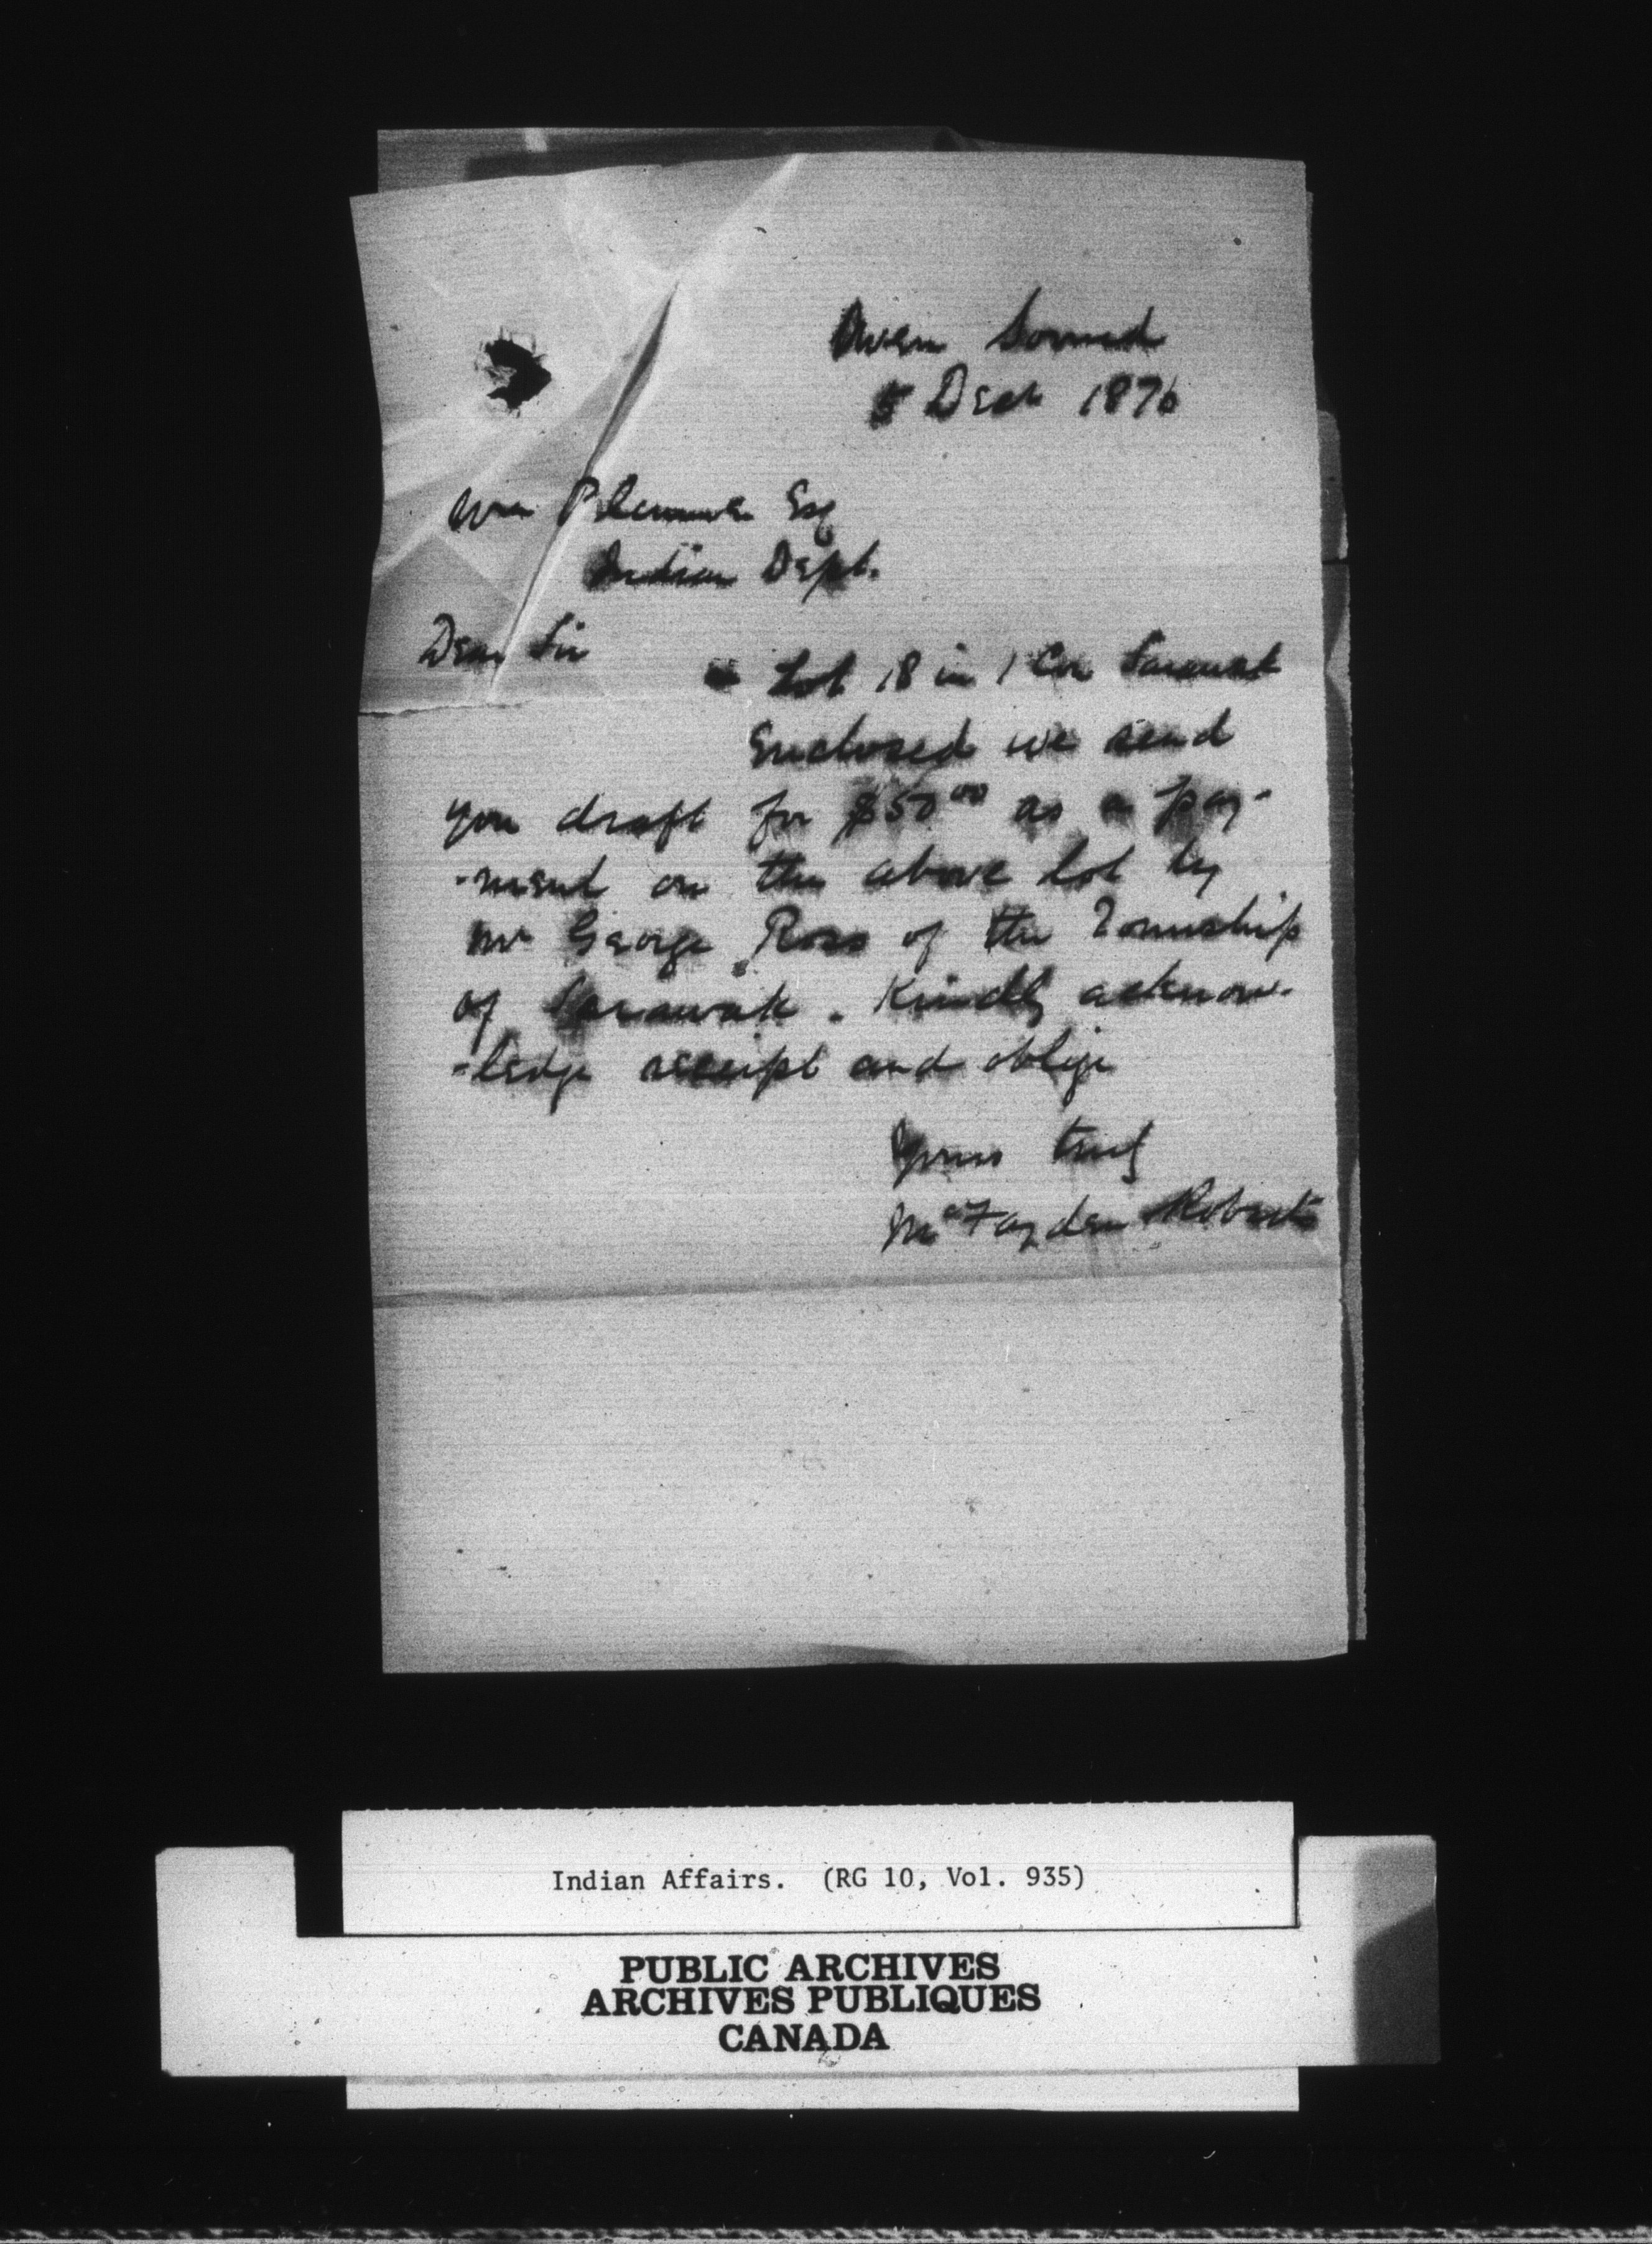 Owen Sound
5 Decr 1876
Wm Plummer Esq
Indian Dept.
Dear Sir
Lot 18 in 1 Con Sarawak
Enclosed we send
you draft for $50⁰⁰ as a pay-
-ment on the above lot by
Mr George Ross of the Township
of Sarawak. Kindly acknow-
-ledge receipt and oblige
Yours truly
McFayden Roberts
Indian Affairs. (RG 10, Vol. 935)
PUBLIC ARCHIVES
ARCHIVES PUBLIQUES
CANADA